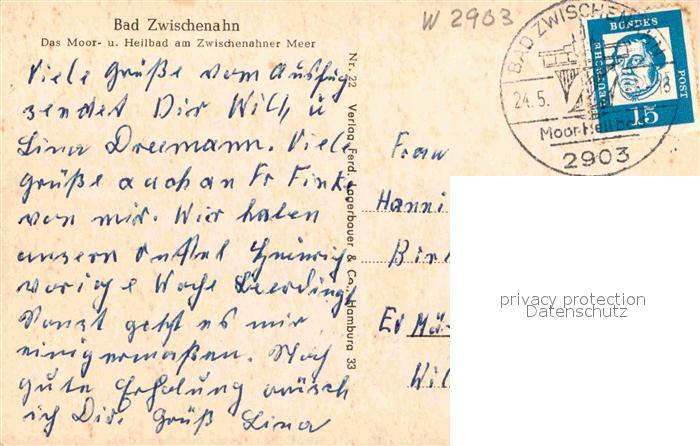 W 2903
Bad Zwischenahn
Das Moor- u. Heilbad am Zwischenahner Meer
BAD ZWISCHENAHN
24.5.
18
Moor-Heilbad
2903
BUNDES
POST
15
Nr. 22 Verlag Ferd. Lagerbauer & Co., Hamburg 33
Viele Grüße vom Ausflug
sendet Dir Willy u
Lina Dreemann. Viele
Grüße auch an Fr Finke
von mir. Wir haben
unsern Onkel Heinrich
vorige Woche beerdingt
Sonst geht es mir
einigermaßen. Noch
gute Erholung wünsch
ich Dir. Gruß Lina
Frau
Hanni
Bir
Ed Mä
Wil
privacy protection
Datenschutz